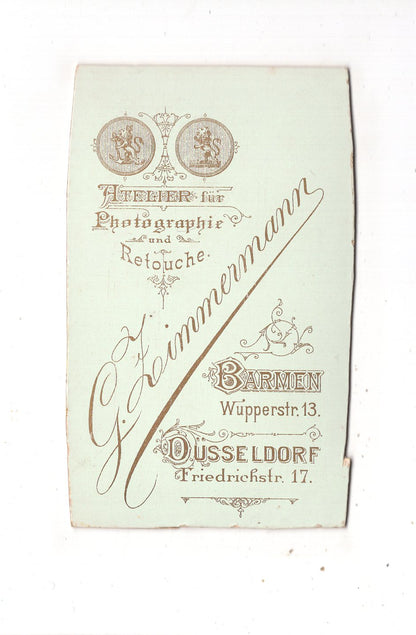 ATELIER für
Photographie
und
Retouche.
G. Z. Zimmermann
BARMEN
Wupperstr. 13.
DÜSSELDORF
Friedrichstr. 17.